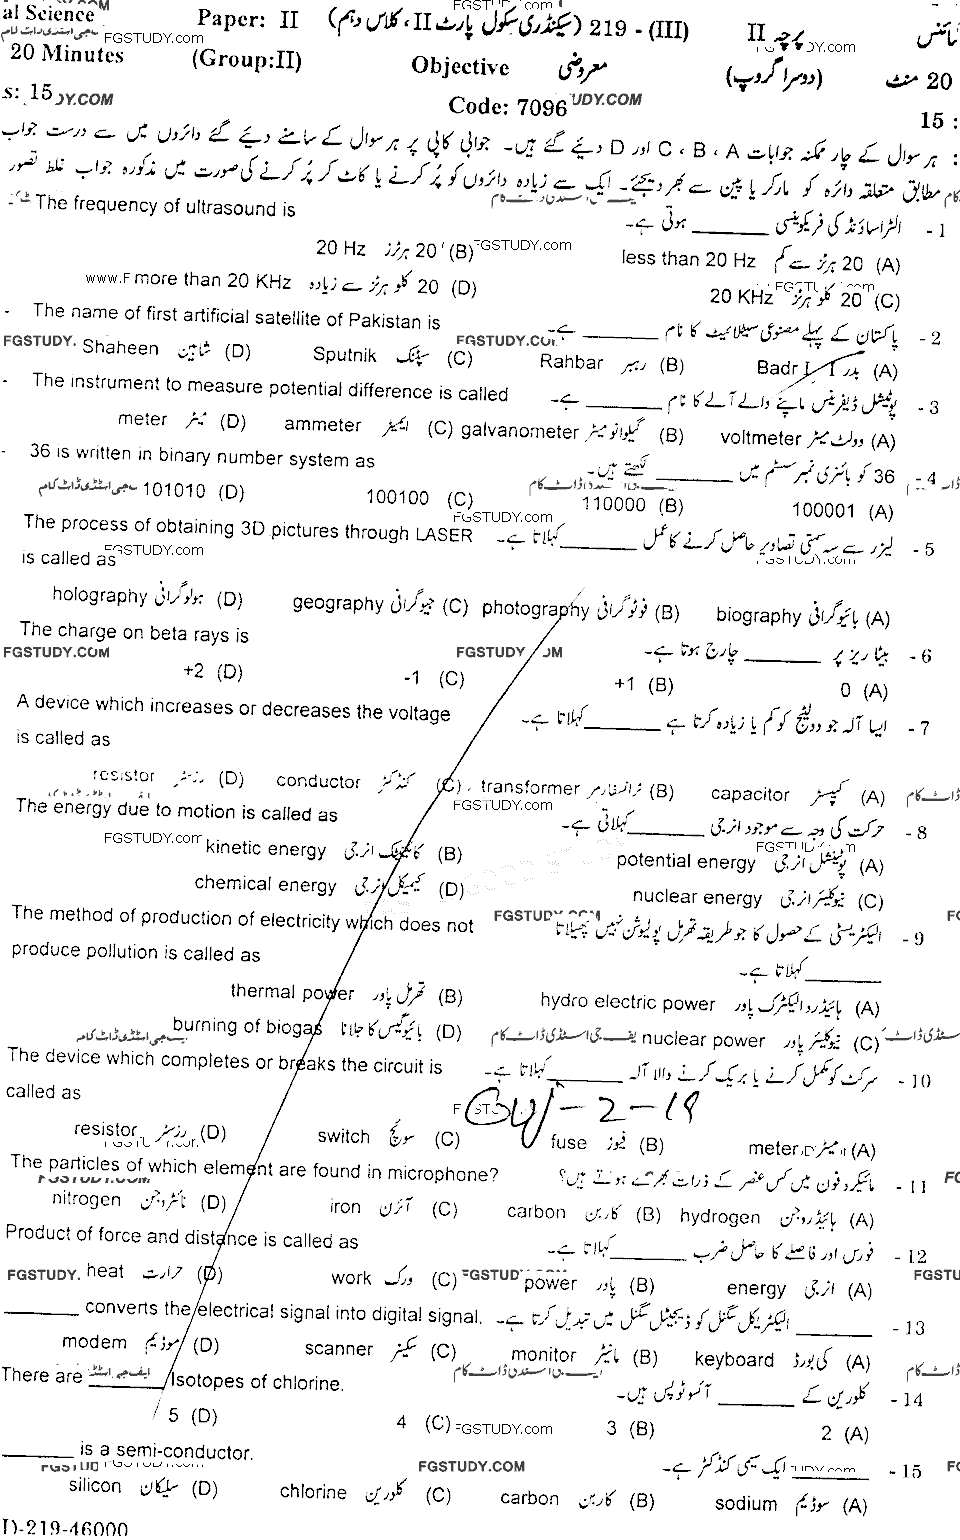 al Science Paper: II سیکنڈری سکول پارٹ II، کلاس دہم) 219 - (III) پرچہ II
20 Minutes (Group:II) Objective معروضی (دوسرا گروپ) 20 منٹ
s: 15 Code: 7096 15 :
: ہر سوال کے چار ممکنہ جوابات A ، B ، C اور D دیئے گئے ہیں۔ جوابی کاپی پر ہر سوال کے سامنے دیئے گئے دائروں میں سے درست جواب
مطابق متعلقہ دائرہ کو مارکر یا پین سے بھر دیجئے۔ ایک سے زیادہ دائروں کو پُر کرنے یا کاٹ کر پُر کرنے کی صورت میں مذکورہ جواب غلط تصور
The frequency of ultrasound is الٹراساؤنڈ کی فریکوئنسی ______ ہوتی ہے۔ - 1
20 Hz 20 ہرٹز (B) less than 20 Hz 20 ہرٹز سے کم (A)
more than 20 KHz 20 کلو ہرٹز سے زیادہ (D) 20 KHz 20 کلو ہرٹز (C)
The name of first artificial satellite of Pakistan is پاکستان کے پہلے مصنوعی سیٹلائیٹ کا نام ______ ہے۔ - 2
Shaheen شاہین (D) Sputnik سپٹنک (C) Rahbar رہبر (B) Badr I بدر I (A)
The instrument to measure potential difference is called پوٹینشل ڈیفرینس ماپنے والے آلے کا نام ______ ہے۔ - 3
meter میٹر (D) ammeter ایمیٹر (C) galvanometer گیلوانومیٹر (B) voltmeter وولٹ میٹر (A)
36 is written in binary number system as 36 کو بائنری نمبر سسٹم میں ______ لکھتے ہیں۔ - 4
101010 (D) 100100 (C) 110000 (B) 100001 (A)
The process of obtaining 3D pictures through LASER لیزر سے سہ سمتی تصاویر حاصل کرنے کا عمل ______ کہلاتا ہے۔ - 5
is called as
holography ہولوگرافی (D) geography جیوگرافی (C) photography فوٹوگرافی (B) biography بائیوگرافی (A)
The charge on beta rays is بیٹا ریز پر ______ چارج ہوتا ہے۔ - 6
+2 (D) -1 (C) +1 (B) 0 (A)
A device which increases or decreases the voltage ایسا آلہ جو وولٹیج کو کم یا زیادہ کرتا ہے ______ کہلاتا ہے۔ - 7
is called as
resistor رزسٹر (D) conductor کنڈکٹر (C) transformer ٹرانسفارمر (B) capacitor کپیسٹر (A)
The energy due to motion is called as حرکت کی وجہ سے موجود انرجی ______ کہلاتی ہے۔ - 8
kinetic energy کائنیٹک انرجی (B) potential energy پوٹینشل انرجی (A)
chemical energy کیمیکل انرجی (D) nuclear energy نیوکلیئر انرجی (C)
The method of production of electricity which does not الیکٹریسٹی کے حصول کا جو طریقہ تھرمل پولیوشن نہیں پھیلاتا - 9
produce pollution is called as ______ کہلاتا ہے۔
thermal power تھرمل پاور (B) hydro electric power ہائیڈرو الیکٹرک پاور (A)
burning of biogas بائیوگیس کا جلانا (D) nuclear power نیوکلیئر پاور (C)
The device which completes or breaks the circuit is سرکٹ کو مکمل کرنے یا بریک کرنے والا آلہ ______ کہلاتا ہے۔ - 10
called as
Guj-2-19
resistor رزسٹر (D) switch سوئچ (C) fuse فیوز (B) meter میٹر (A)
The particles of which element are found in microphone? مائیکروفون میں کس عنصر کے ذرات بھرے ہوتے ہیں؟ - 11
nitrogen نائٹروجن (D) iron آئرن (C) carbon کاربن (B) hydrogen ہائیڈروجن (A)
Product of force and distance is called as فورس اور فاصلے کا حاصل ضرب ______ کہلاتا ہے۔ - 12
heat حرارت (D) work ورک (C) power پاور (B) energy انرجی (A)
______ converts the electrical signal into digital signal. ______ الیکٹریکل سگنل کو ڈیجیٹل سگنل میں تبدیل کرتا ہے۔ - 13
modem موڈیم (D) scanner سکینر (C) monitor مانیٹر (B) keyboard کی بورڈ (A)
There are ______ Isotopes of chlorine. کلورین کے ______ آئسوٹوپس ہیں۔ - 14
5 (D) 4 (C) 3 (B) 2 (A)
______ is a semi-conductor. ______ ایک سیمی کنڈکٹر ہے۔ - 15
FGSTUDY.COM
silicon سلیکان (D) chlorine کلورین (C) carbon کاربن (B) sodium سوڈیم (A)
D-219-46000